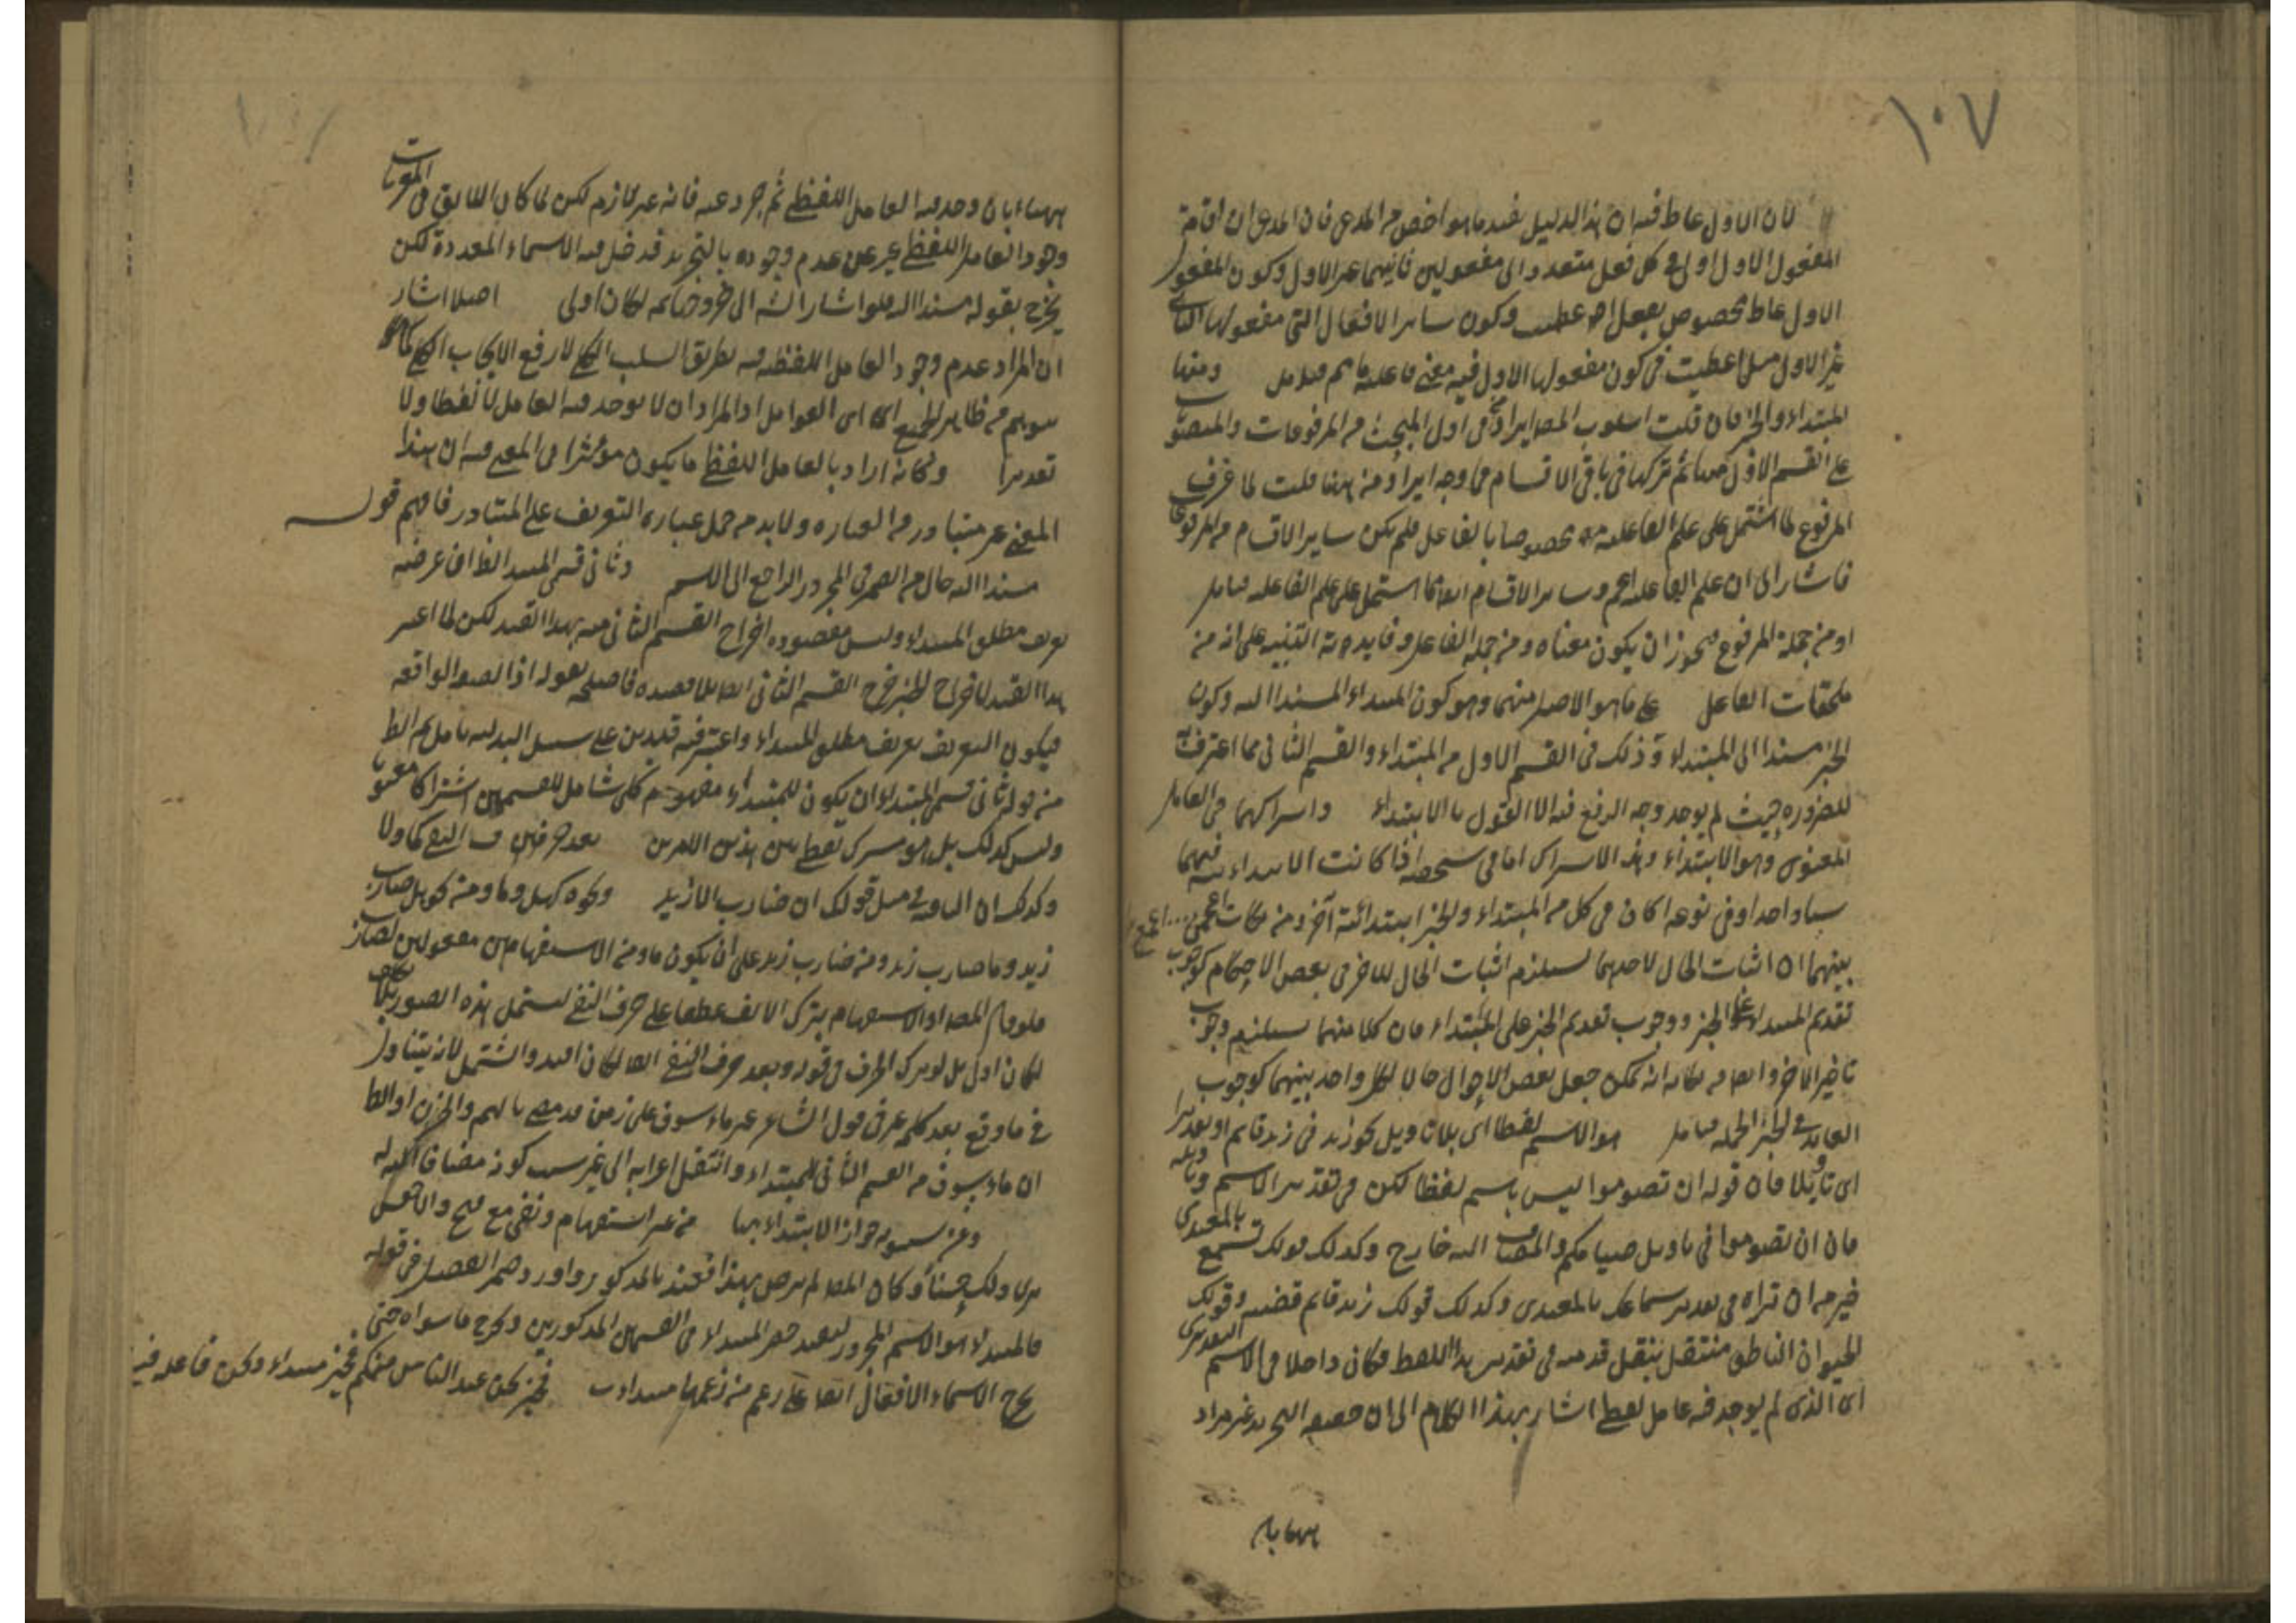 ١٠٧
لان الاول عاط فيه ان هذا الدليل يفيد ما هو اخص من المدعى فان المدعى ان اقامة
المفعول الاول اولى في كل فعل متعد الى مفعولين ثانيهما غير الاول وكون المفعول
الاول عاط مخصوص بفعل اعطيت وكون ساير الافعال التي مفعولها الثاني
غير الاول مثل اعطيت في كون مفعولها الاول فيه معنى فاعلية ومنها
المبتداء والخبر فان قلت اسلوب المص ايراد في اول المبحث من المرفوعات والمنصوبات
على القسم الاول ثم تركها في باقي الاقسام وجه ايراد منه ههنا قلت لما عرف
المرفوع لما اشتمل على علم الفاعلية مخصوصا بالفاعل فلم يكن ساير الاقسام من المرفوع
فاشار الى ان علم الفاعلية اعم وساير الاقسام ايضا مما اشتمل على علم الفاعلية فتامل
او من جملة المرفوع فيجوز ان يكون معناه ومن جملة الفاعل وفايدته التنبيه على انه من
ملحقات الفاعل على ما هو الاصل منهما وهو كون المبتداء المسند اليه وكون
الخبر مسندا الى المبتداء وذلك في القسم الاول من المبتداء والقسم الثاني مما اعترف به
للضرورة حيث لم يوجد وجه الرفع فيه الا القول بالابتداء واشتراكهما في العامل
المعنوى وهو الابتداء وهذا الاشتراك اما في شخصه اذا كانت الابتدائية فيهما
شيا واحدا وفي نوعه اذا كان في كل من المبتداء والخبر ابتدائية اخرى ومن نكات الجمع
بينهما ان اثبات الحال لاحدهما يستلزم اثبات الحال للاخر في بعض الاحكام كوجوب
تقديم المبتداء على الخبر ووجوب تقديم الخبر على المبتداء فان كلا منهما يستلزم وجوب
تاخير الاخر وايضا من نكاته انه يمكن جعل بعض الاحوال حالا لكل واحد بينهما كوجوب
العايد في الخبر الجملة فتامل هو الاسم لفظا اى بلا تاويل نحو زيد في زيد قايم او تقديرا
اى تاويلا فان قوله ان تصوموا ليس باسم لفظا لكن في تقدير الاسم وتاويله
فان ان تصوموا في تاويل صيامكم والمضاف اليه خارج وكذلك قولك تسمع بالمعيدى
خير من ان تراه في تقدير سماعك بالمعيدى وكذلك قولك زيد قايم قضية وقولك
الحيوان الناطق منتقل بنقل قدميه في تقدير هذا اللفظ فكان داخلا في الاسم التقديرى
اى الذى لم يوجد فيه عامل لفظى اشار بهذا الكلام الى ان حقيقة التجريد غير مراد
ههنا بان
ههنا بان وجد فيه العامل اللفظي ثم جرد عنه فانه غير لازم لكن لما كان السابق في المعربات
وجود العامل اللفظي عبر عن عدم وجوده بالتجريد فدخل فيه الاسماء المعدودة لكن
يخرج بقوله مسندا اليه فلو اشار الش الى خروجها ثمه لكان اولى اصلا اشار
ان المراد عدم وجود العامل اللفظي فيه بطريق السلب الكلي لا رفع الايجاب الكلي كما
يتوهم من ظاهر الجمع اى العوامل اذ المراد ان لا يوجد فيه العامل لا لفظا ولا
تقديرا وكانه اراد بالعامل اللفظي ما يكون مؤثرا في المعنى فيه ان هذا
المعنى غير متبادر من العبارة ولا بد من حمل عبارة التعريف على المتبادر فافهم قوله
مسندا اليه حال من الضمير في المجرد الراجع الى الاسم وثاني قسمي المبتداء الظ ان غرضه
تعريف مطلق المبتداء وليس مقصوده اخراج القسم الثاني منه بهذا القيد لكن لما اعتبر
هذا القيد لاخراج الخبر خرج القسم الثاني ايضا بلا قصده فاصلحه بقوله او الصفة الواقعة
فيكون التعريف تعريف مطلق المبتداء واعتبر فيه قيدين على سبيل البدلية تامل ثم الظ
من قوله ثاني قسمي المبتداء ان يكون للمبتداء مفهوم كلي شامل للقسمين اشتراكا معنويا
وليس كذلك بل هو مشترك لفظا بين هذين الامرين بعد حرف النفي كما ولا
وكذلك ان النافية في مثل قولك ان ضارب الا زيد ونحوه كهل وما ومن نحو هل ضارب
زيد وما ضارب زيد ومن ضارب زيد على ان يكون ما ومن الاستفهامين مفعولين لضارب
فلو قال المص او الاستفهام بترك الالف عطفا على حرف النفي ليشتمل هذه الصور بلا تكلف
لكان اولى بل لو ترك الحرف في قوله وبعد حرف النفي ايضا لكان افيد واشمل لانه يتناول
في ما وقع بعد كلمة غير في قول الشاعر غير ماسوف على زمن ينقضى بالهم والحزن اذ الظ
ان ماسوف من القسم الثاني للمبتداء وانتقل اعرابه الى غير بسبب كونه مضافا اليه له
وعن سيبويه جواز الابتداء بها من غير استفهام ونفي مع قبح والاخفش
يرى ذلك حسنا وكان المص لم يرض بهذا فقيد بالمذكور واورد ضمير الفصل في قوله
فالمبتداء هو الاسم المجرد ليفيد حصر المبتداء في القسمين المذكورين وخرج ما سواه حتى
يخرج الاسماء الافعال ايضا على رغم من زعمها مبتداءت فخير نحن عند الناس منكم فخير مبتداء ونحن فاعله